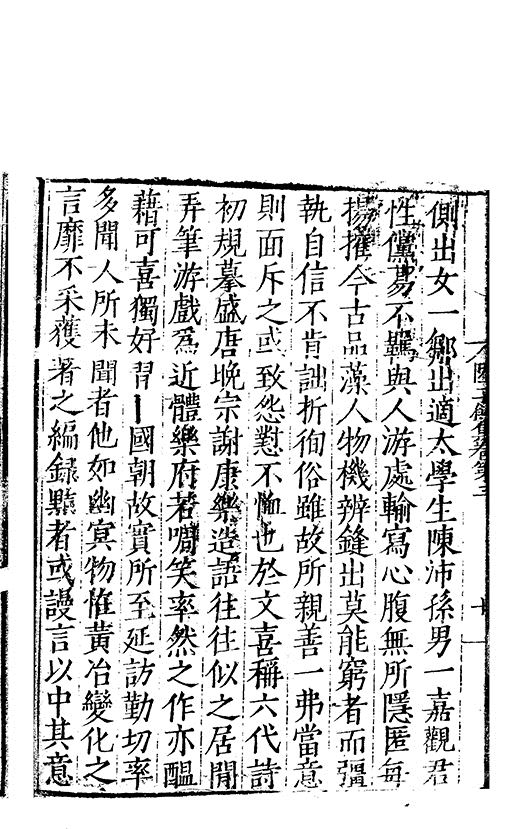 側出女一鄒出適太學生陳沛孫男一嘉觀君
性儻蕩不羈與人游處輸寫心腹無所隱匿每
揚搉今古品藻人物機辨鋒出莫能窮者而彊
執自信不肯詘折徇俗雖故所親善一弗當意
則面斥之或致怨懟不恤也於文喜稱六代詩
初規摹盛唐晚宗謝康樂造語往往似之居閒
弄筆游戲爲近體樂府若啁笑率然之作亦醞
藉可喜獨好習國朝故實所至延訪勤切率
多聞人所未聞者他如幽冥物恠黃冶變化之
言靡不采獲著之編録黠者或謾言以中其意